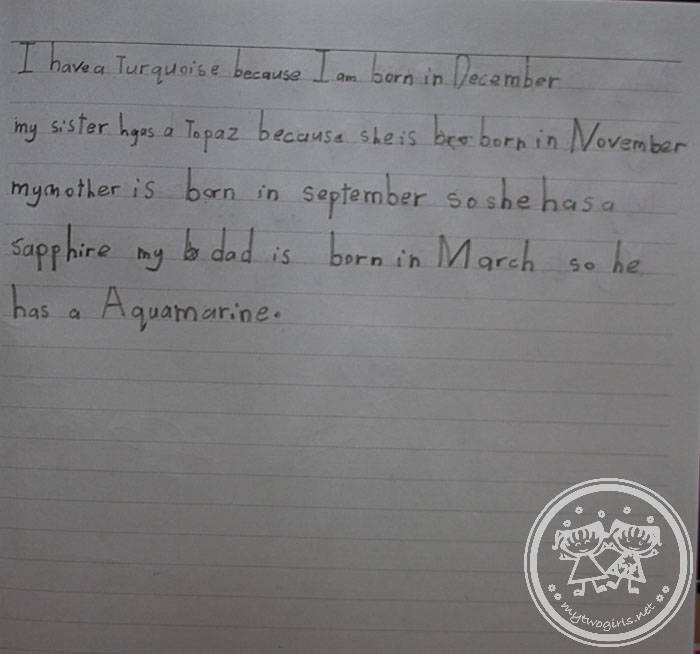 I have a Turquoise because I am born in December
my sister hgas a Topaz because she is bco born in November
mymother is born in september so she has a
sapphire my b dad is born in March so he
has a Aquamarine.
mytwogirls.net